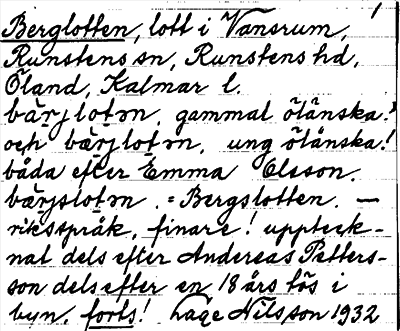 1
Berglotten, lott i Vansrum,
Runstens sn, Runstens hd,
Öland, Kalmar l.
bärjlotən, gammal öländska!
och bärjlotən, ung öländska!
båda efter Emma Olsson.
bärjslotən. = Bergslotten. —
riksspråk, finare! uppteck-
nat dels efter Andreas Petters-
son dels efter en 18 års tös i
byn. forts! Lage Nilsson 1932